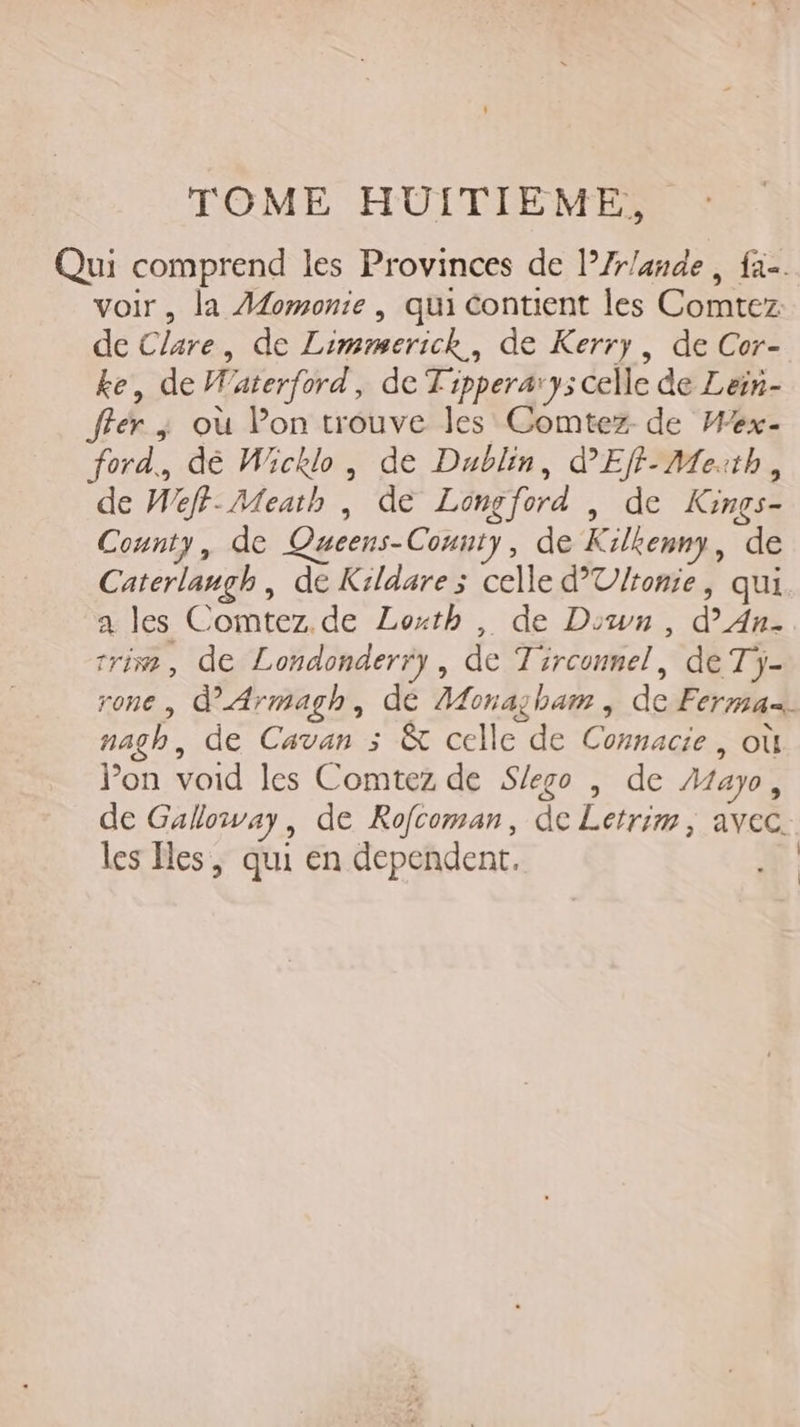 TOME HUITIEME,
Qui comprend les Provinces de l'Irlande, ſa-
voir, la Momonie, qui contient les Comtez
de Clare, de Limmerick, de Kerry, de Cor-
ke, de Waterford, de Tipperary; celle de Lein-
ſter, où l'on trouve les Comtez de Wex-
ford, de Wicklo, de Dublin, d'Eſt-Meath,
de Weſt-Meath, de Longford, de Kings-
County, de Queens-County, de Kilkenny, de
Caterlaugh, de Kildare; celle d'Ultonie, qui
a les Comtez de Louth, de Down, d'An-
trim, de Londonderry, de Tirconnel, de Ty-
rone, d'Armagh, de Monagham, de Ferma-
nagh, de Cavan; & celle de Connacie, où
l'on void les Comtez de Slego, de Mayo,
de Galloway, de Roſcoman, de Letrim, avec
les Iles, qui en dependent.